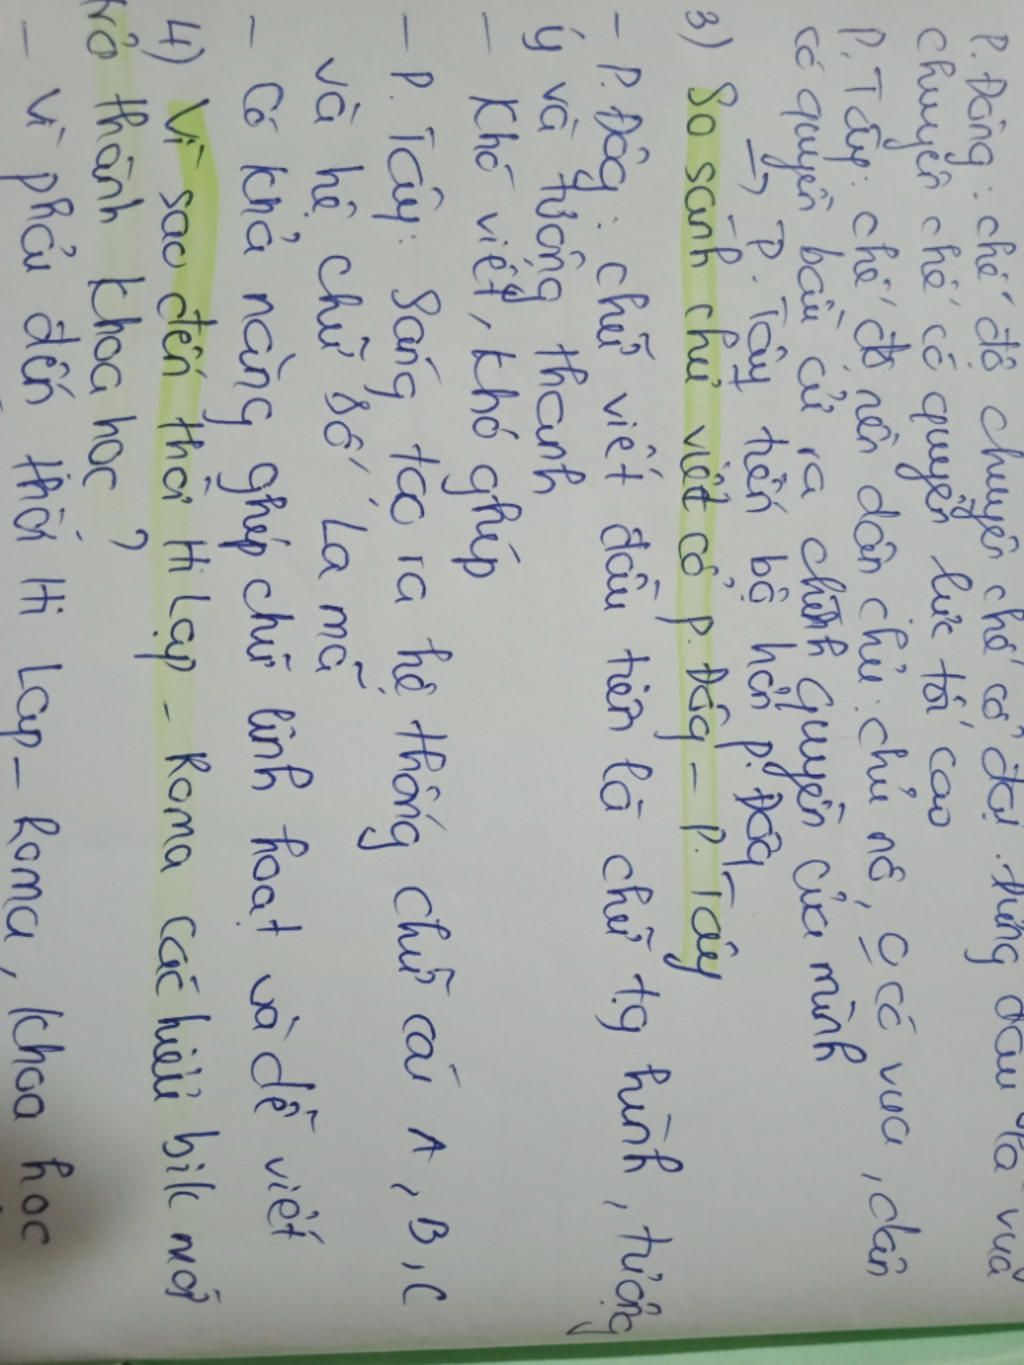 P. Đông: chế độ chuyên chế cổ đại. Đứng đầu là vua
chuyên chế có quyền lực tối cao
P. Tây: chế độ nền dân chủ: chủ nô, 0 có vua, dân
có quyền bầu cử ra chính quyền của mình
→ P. Tây tiến bộ hơn P. Đôg
3) So sánh chữ viết cổ P. Đôg - P. Tây
- P. Đôg: chữ viết đầu tiên là chữ tg hình, tượng
ý và tượng thanh
- Khó viết, khó ghép
- P. Tây: Sáng tạo ra hệ thống chữ cái A, B, C
và hệ chữ số La mã
- Có khả năng ghép chữ linh hoạt và dễ viết
4) Vì sao đến thời Hi Lạp - Roma các hiểu bik mới
trở thành khoa học?
- Vì phải đến thời Hi Lạp - Roma, khoa học